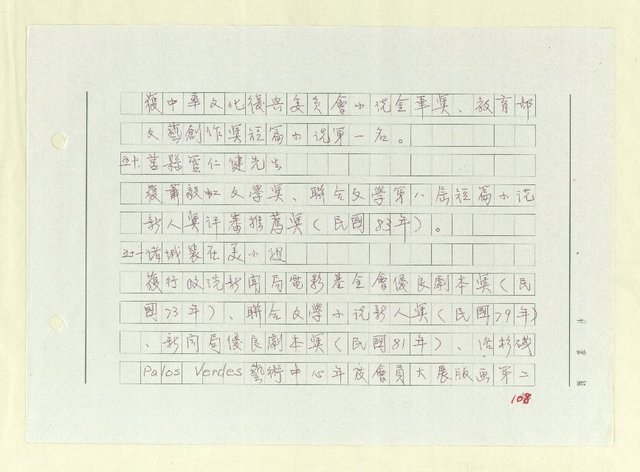 獲中華文化復興委員會小說金筆獎、教育部
文藝創作獎短篇小說第一名。
五十.莒縣管仁健先生
獲蕭毅虹文學獎、聯合文學第八屆短篇小說
新人獎評審推薦獎(民國83年)。
五一諸城裴在美小姐
獲行政院新聞局電影基金會優良劇本獎(民
國73年)、聯合文學小說新人獎(民國79年)
、新聞局優良劇本獎(民國81年)、洛杉磯
Palos Verdes藝術中心年度會員大展版画第二
108